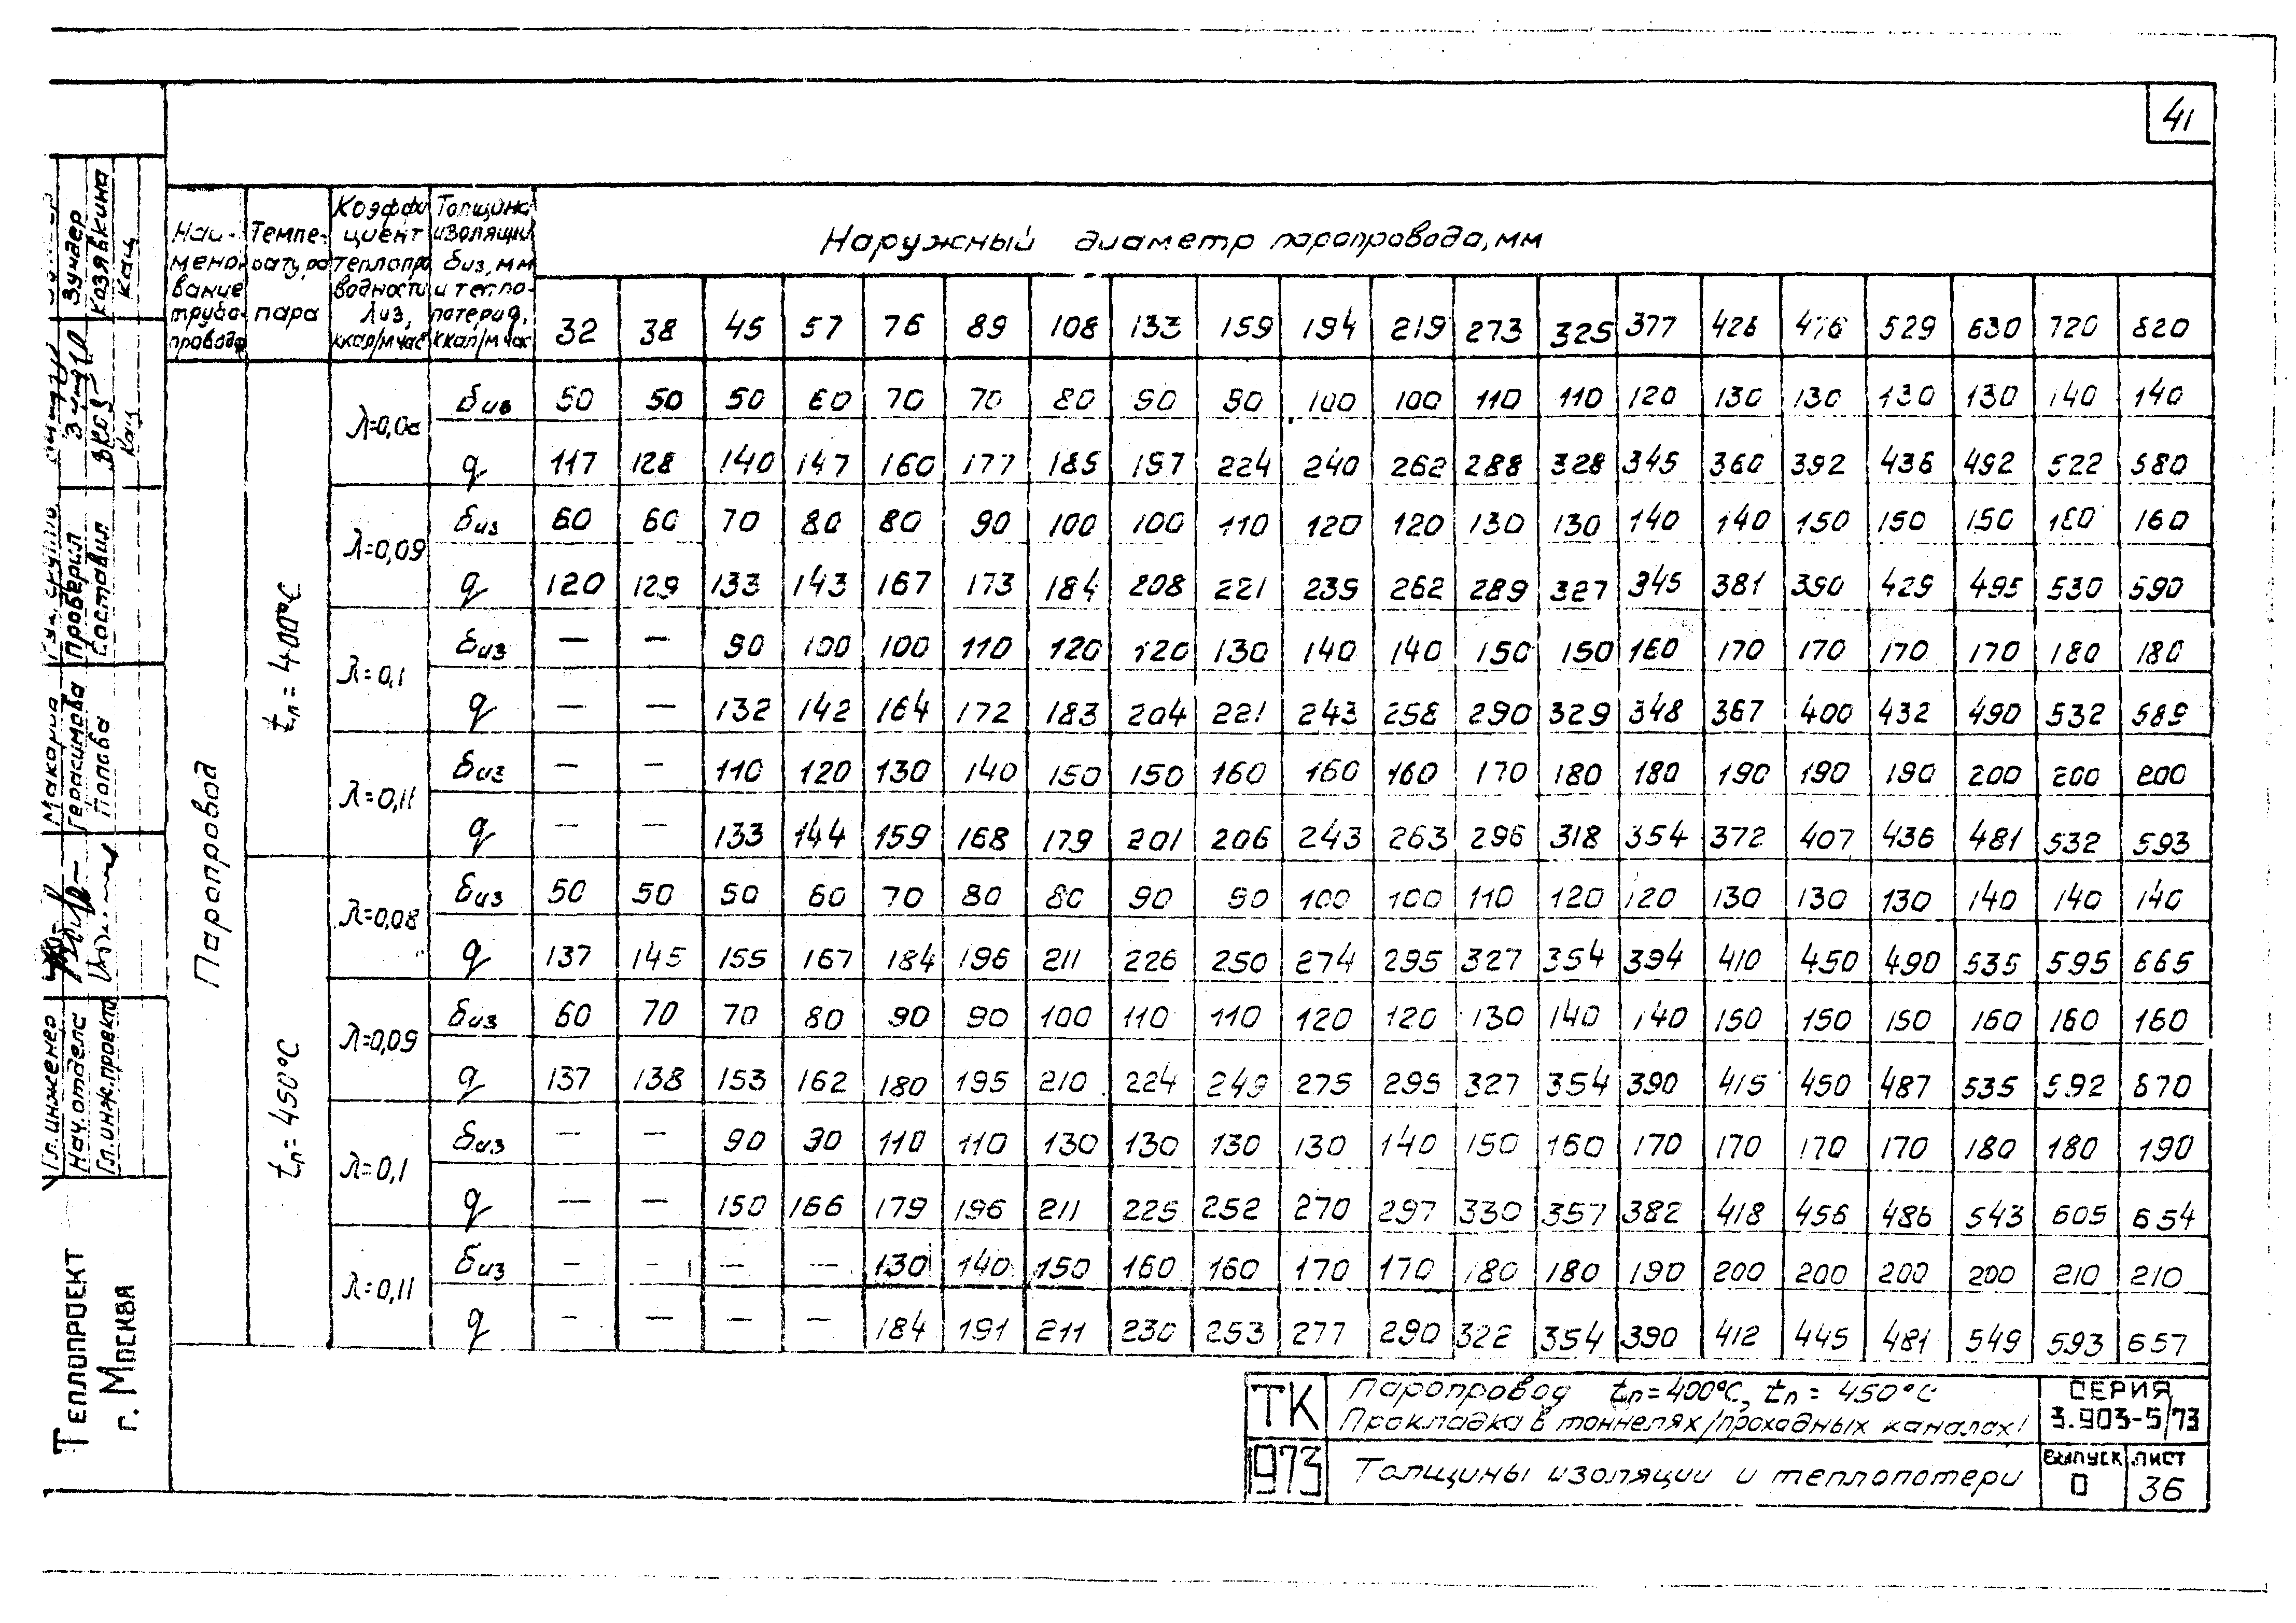 41
Наи-
мено-
вание
трубо-
провода
Темпе-
ратура
пара
Коэффи
циент
теплопро
водности
λиз,
ккал/м час
Толщина
изоляции
δиз, мм
и тепло-
потери q,
ккал/м час
Наружный диаметр паропровода, мм
32 38 45 57 76 89 108 133 159 194 219 273 325 377 426 476 529 630 720 820
Паропровод
tп = 400°С
λ=0,08
δиз 50 50 50 60 70 70 80 90 90 100 100 110 110 120 130 130 130 130 140 140
q 117 128 140 147 160 177 185 197 224 240 262 288 328 345 360 392 436 492 522 580
λ=0,09
δиз 60 60 70 80 80 90 100 100 110 120 120 130 130 140 140 150 150 150 160 160
q 120 129 133 143 167 173 184 208 221 239 262 289 327 345 381 390 429 495 530 590
λ=0,1
δиз — — 90 100 100 110 120 120 130 140 140 150 150 160 170 170 170 170 180 180
q — — 132 142 164 172 183 204 221 243 258 290 329 348 367 400 432 490 532 589
λ=0,11
δиз — — 110 120 130 140 150 150 160 160 160 170 180 180 190 190 190 200 200 200
q — — 133 144 159 168 179 201 206 243 263 296 318 354 372 407 436 481 532 593
tп = 450°С
λ=0,08
δиз 50 50 50 60 70 80 80 90 90 100 100 110 120 120 130 130 130 140 140 140
q 137 145 155 167 184 196 211 226 250 274 295 327 354 394 410 450 490 535 595 665
λ=0,09
δиз 60 70 70 80 90 90 100 110 110 120 120 130 140 140 150 150 150 160 160 160
q 137 138 153 162 180 195 210 224 249 275 295 327 354 390 415 450 487 535 592 670
λ=0,1
δиз — — 90 90 110 110 130 130 130 130 140 150 160 170 170 170 170 180 180 190
q — — 150 166 179 196 211 225 252 270 297 330 357 382 418 456 486 543 605 654
λ=0,11
δиз — — — — 130 140 150 160 160 170 170 180 180 190 200 200 200 200 210 210
q — — — — 184 191 211 230 253 277 290 322 354 390 412 445 481 549 593 657
ТК
1973
Паропровод tп = 400°С, tп = 450°С
Прокладка в тоннелях/проходных каналах/
Толщины изоляции и теплопотери
СЕРИЯ
3.903-5/73
выпуск лист
0 36
Гл. инженер
Нач. отдела
Гл. инж. проекта
Герасимова
Попова
Проверил
Составил
Зундер
Козявкина
Кац
Теплопроект
г. Москва